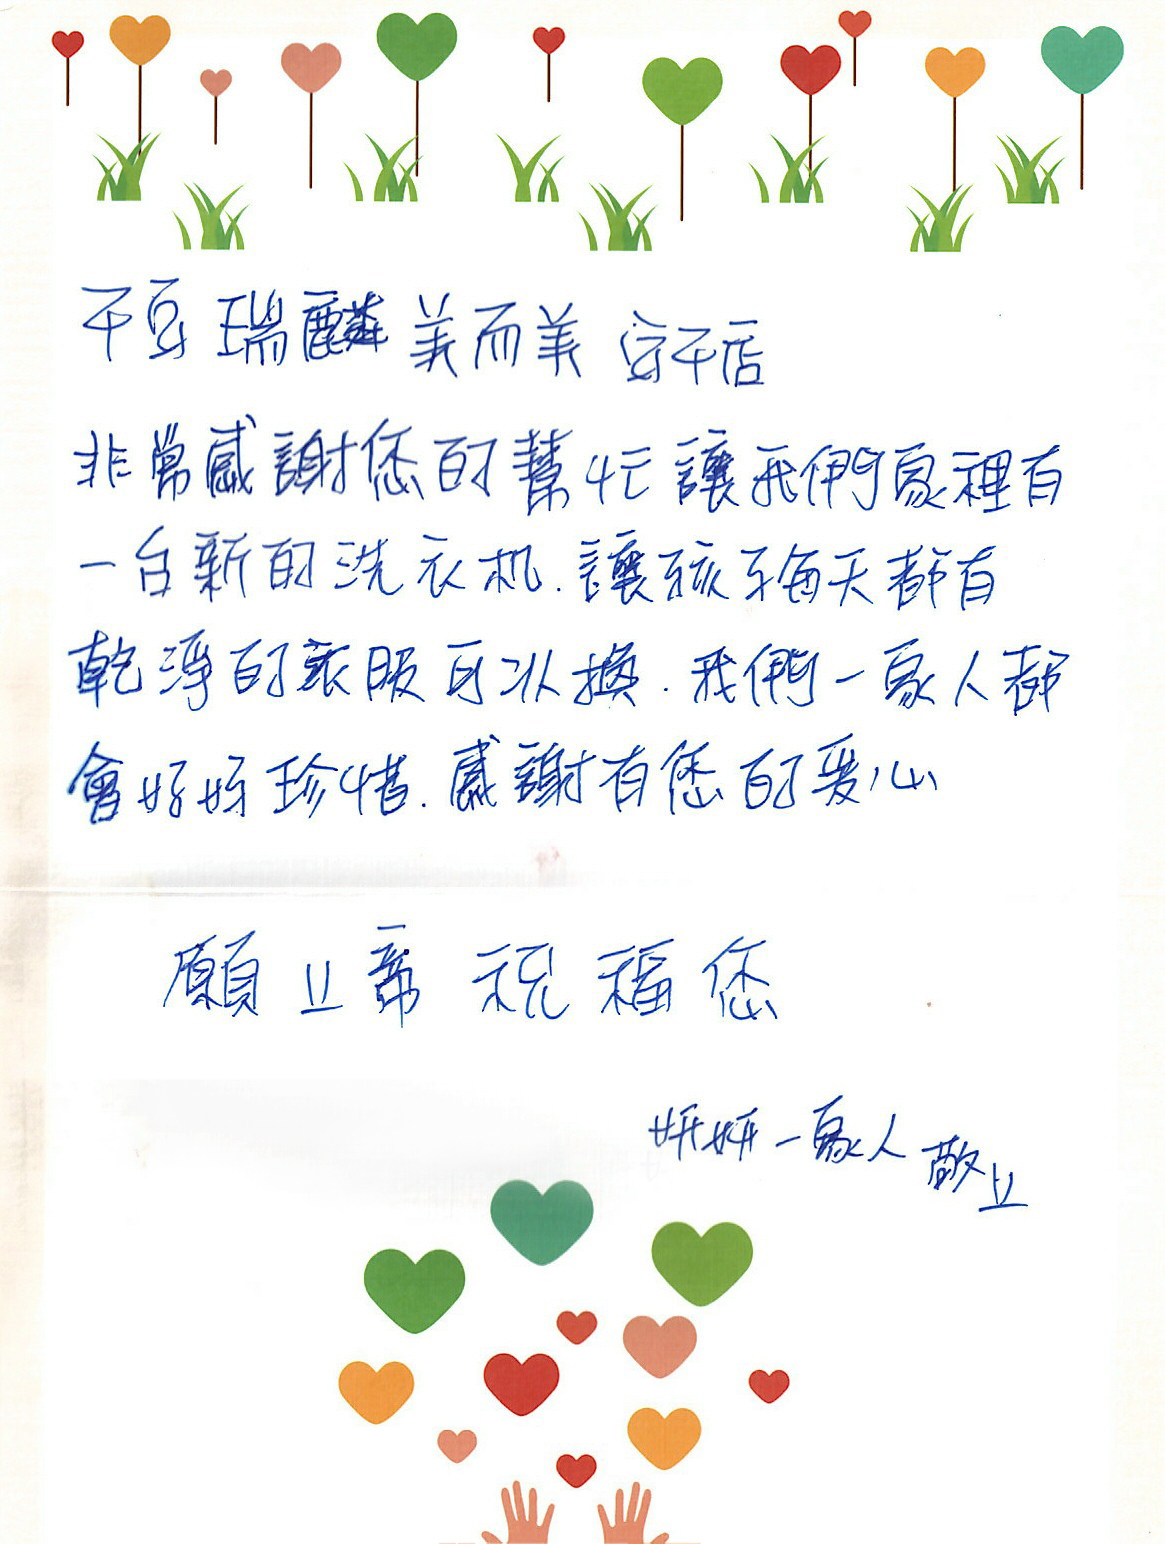 瑞麟 美而美 店
非常感謝您的幫忙 讓我們家裡有
一台新的洗衣机.讓孩子每天都有
乾淨的衣服可以換.我們一家人都
會好好珍惜.感謝有您的愛心
願上帝 祝福您
妍妍一家人 敬上